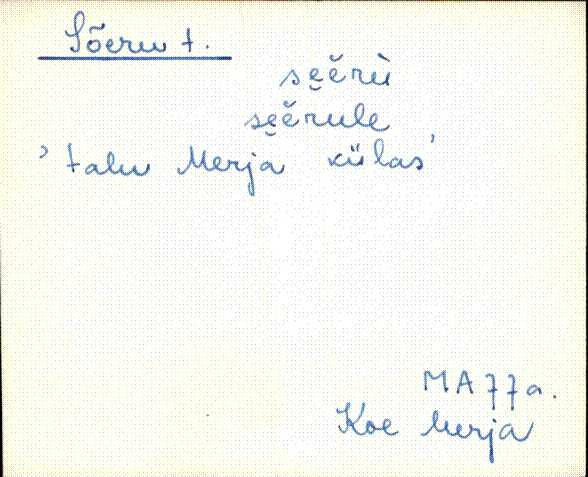 Sõeru t.
sẹẹ̆rù
sẹẹ̆rule
'talu Merja külas'
MA 77a.
Koe Merja